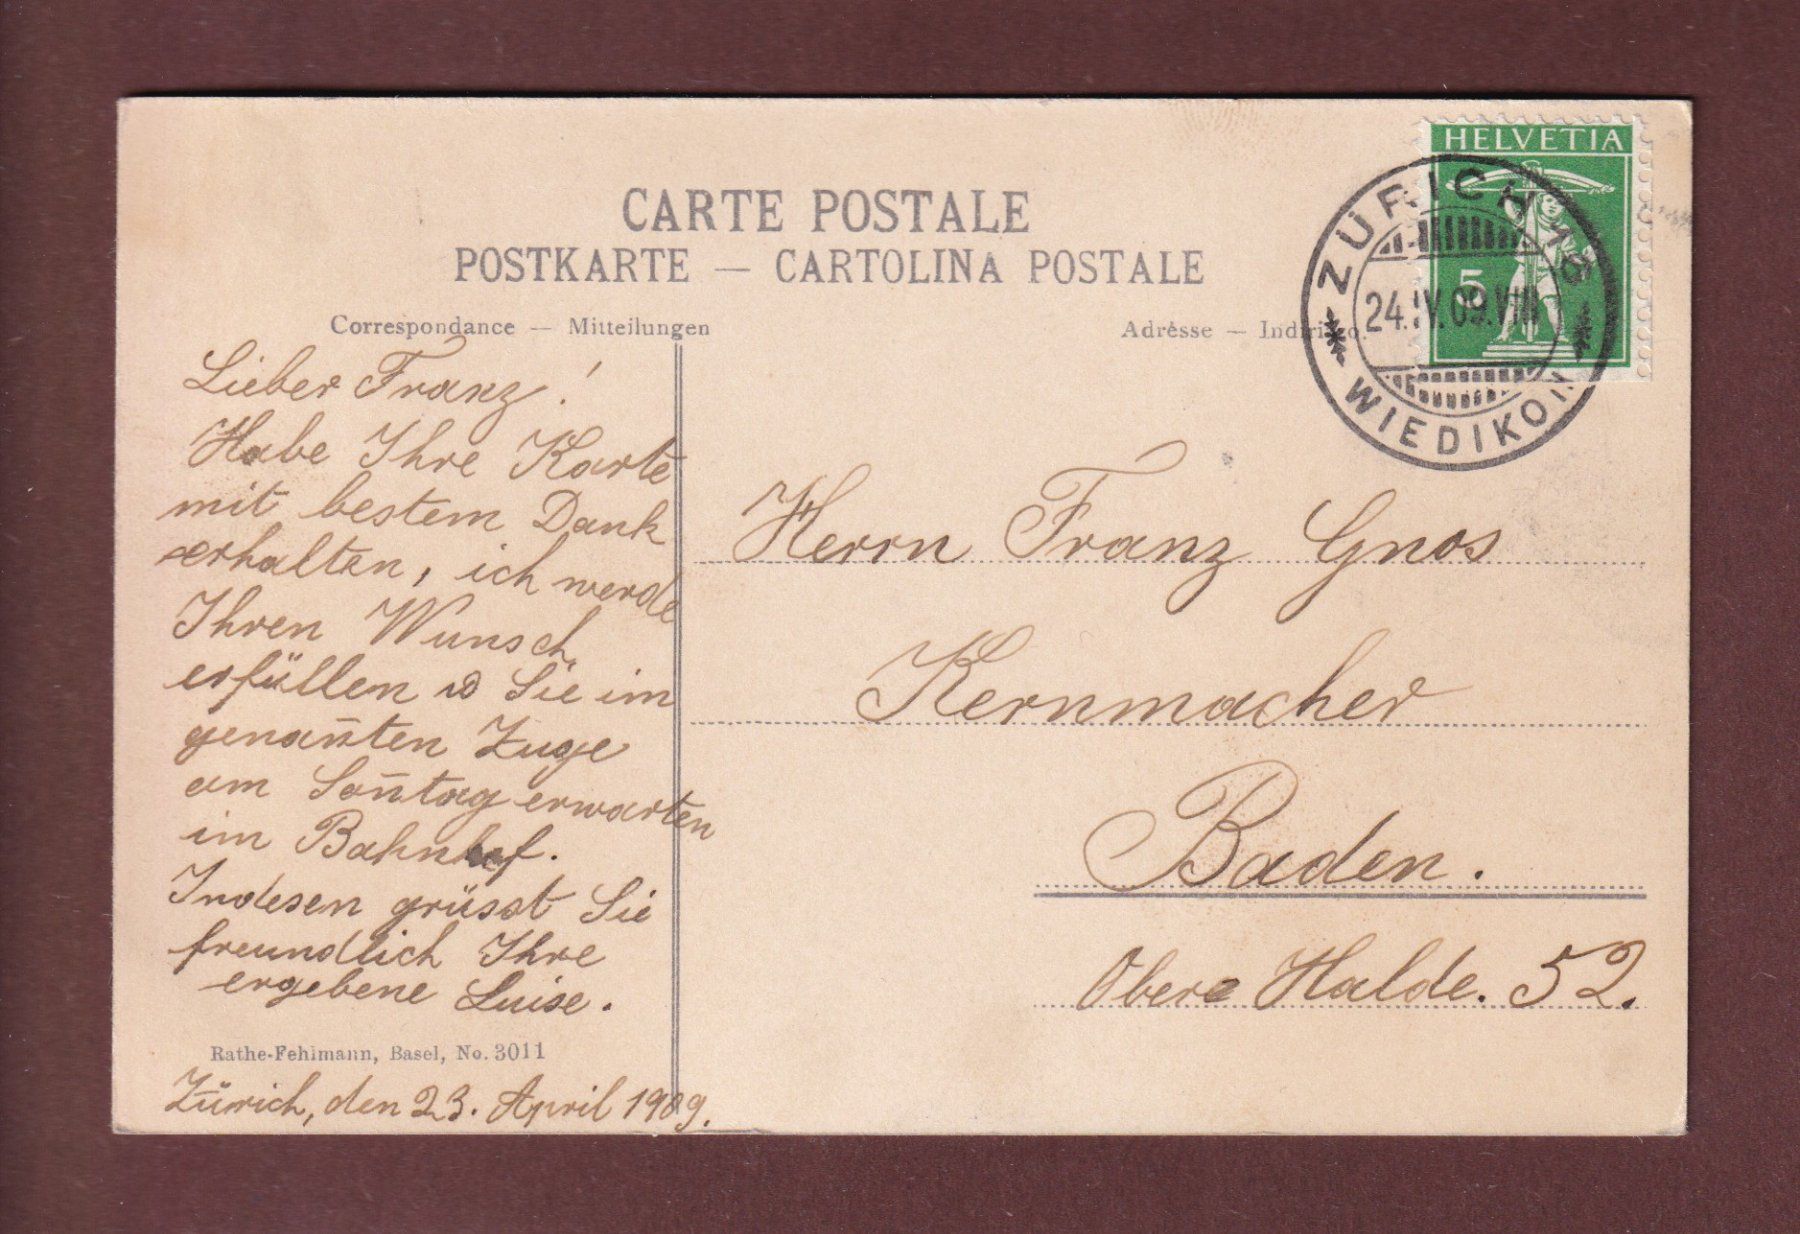 CARTE POSTALE
POSTKARTE — CARTOLINA POSTALE
Correspondance — Mitteilungen
Adrèsse — Indirizzo.
HELVETIA
5
ZÜRICH 16
24.IV.09.VIII
WIEDIKON
Lieber Franz!
Habe Ihre Karte
mit bestem Dank
erhalten, ich werde
Ihren Wunsch
erfüllen u Sie im
genan̄ten Zuge
am Son̄tag erwarten
im Bahnhof.
Indesen grüsst Sie
freundlich Ihre
ergebene Luise.
Rathe-Fehlmann, Basel, No. 3011
Zürich, den 23. April 1909.
Herrn Franz Gnos
Kernmacher
Baden.
Obere Halde. 52.